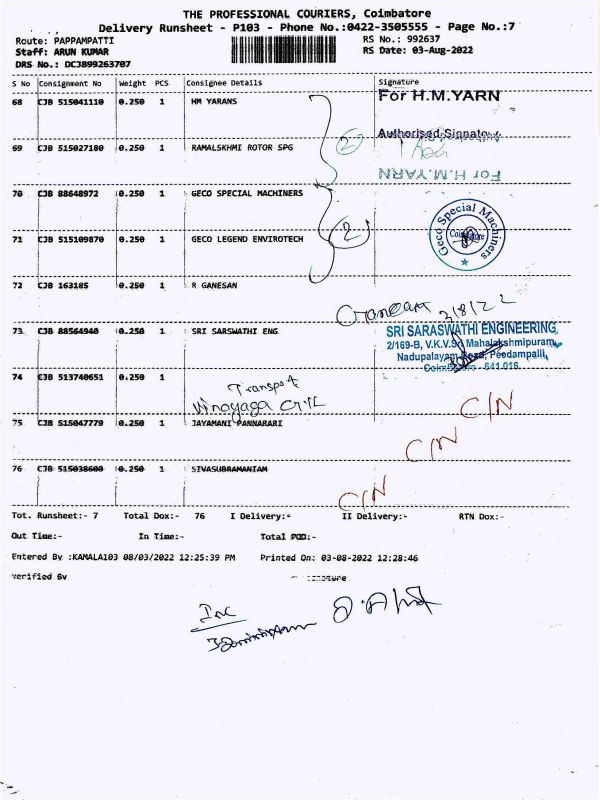 THE PROFESSIONAL COURIERS, Coimbatore
Delivery Runsheet - P103 - Phone No.:0422-3505555 - Page No.:7
Route: PAPPAMPATTI
RS No.: 992637
Staff: ARUN KUMAR
RS Date: 03-Aug-2022
DRS No.: DCJB99263707
S No Consignment No Weight PCS Consignee Details Signature
68 CJB 515041110 0.250 1 HM YARANS
For H.M.YARN
Authorised Signatory
69 CJB 515027180 0.250 1 RAMALSKHMI ROTOR SPG
2
For H.M.YARN
70 CJB 88648972 0.250 1 GECO SPECIAL MACHINERS
Geco Special Machiners
Coimbatore
71 CJB 515109870 0.250 1 GECO LEGEND ENVIROTECH
2
72 CJB 163185 0.250 1 R GANESAN
3/8/22
73 CJB 88564940 0.250 1 SRI SARSWATHI ENG
SRI SARASWATHI ENGINEERING
2/169-B, V.K.V.Sri Mahalakshmipuram,
Nadupalayam Road, Peedampalli,
Coimbatore - 641 016.
74 CJB 513740651 0.250 1
Transport
Vinayaga
C/N
75 CJB 515047779 0.250 1 JAYAMANI PANNARARI
C/N
76 CJB 515038600 0.250 1 SIVASUBRAMANIAM
C/N
Tot. Runsheet:- 7 Total Dox:- 76 I Delivery:- II Delivery:- RTN Dox:-
Out Time:- In Time:- Total POD:-
Entered By :KAMALA103 08/03/2022 12:25:39 PM Printed On: 03-08-2022 12:28:46
Verified By